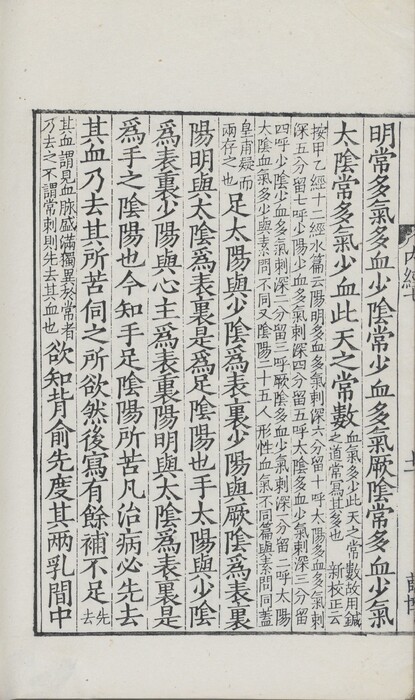 明常多氣多血少陰常少血多氣厥陰常多血少氣
太陰常多氣少血此天之常數血氣多少此天之常數故用鍼之道常寫其多也 新校正云
按甲乙經十二經水篇云陽明多血多氣刺深六分留十呼太陽多血多氣刺
深五分留七呼少陽少血多氣刺深四分留五呼太陰多血少氣刺深三分留
四呼少陰少血多氣刺深二分留三呼厥陰多血少氣刺深一分留二呼太陽
太陰血氣多少與素問不同又陰陽二十五人形性血氣不同篇與素問同蓋
皇甫疑而兩存之也足太陽與少陰爲表裏少陽與厥陰爲表裏
陽明與太陰爲表裏是爲足陰陽也手太陽與少陰
爲表裏少陽與心主爲表裏陽明與太陰爲表裏是
爲手之陰陽也今知手足陰陽所苦凡治病必先去
其血乃去其所苦伺之所欲然後寫有餘補不足先去
其血謂見血脉盛滿獨異於常者乃去之不謂常刺則先去其血也欲知背俞先度其兩乳間中
內經七